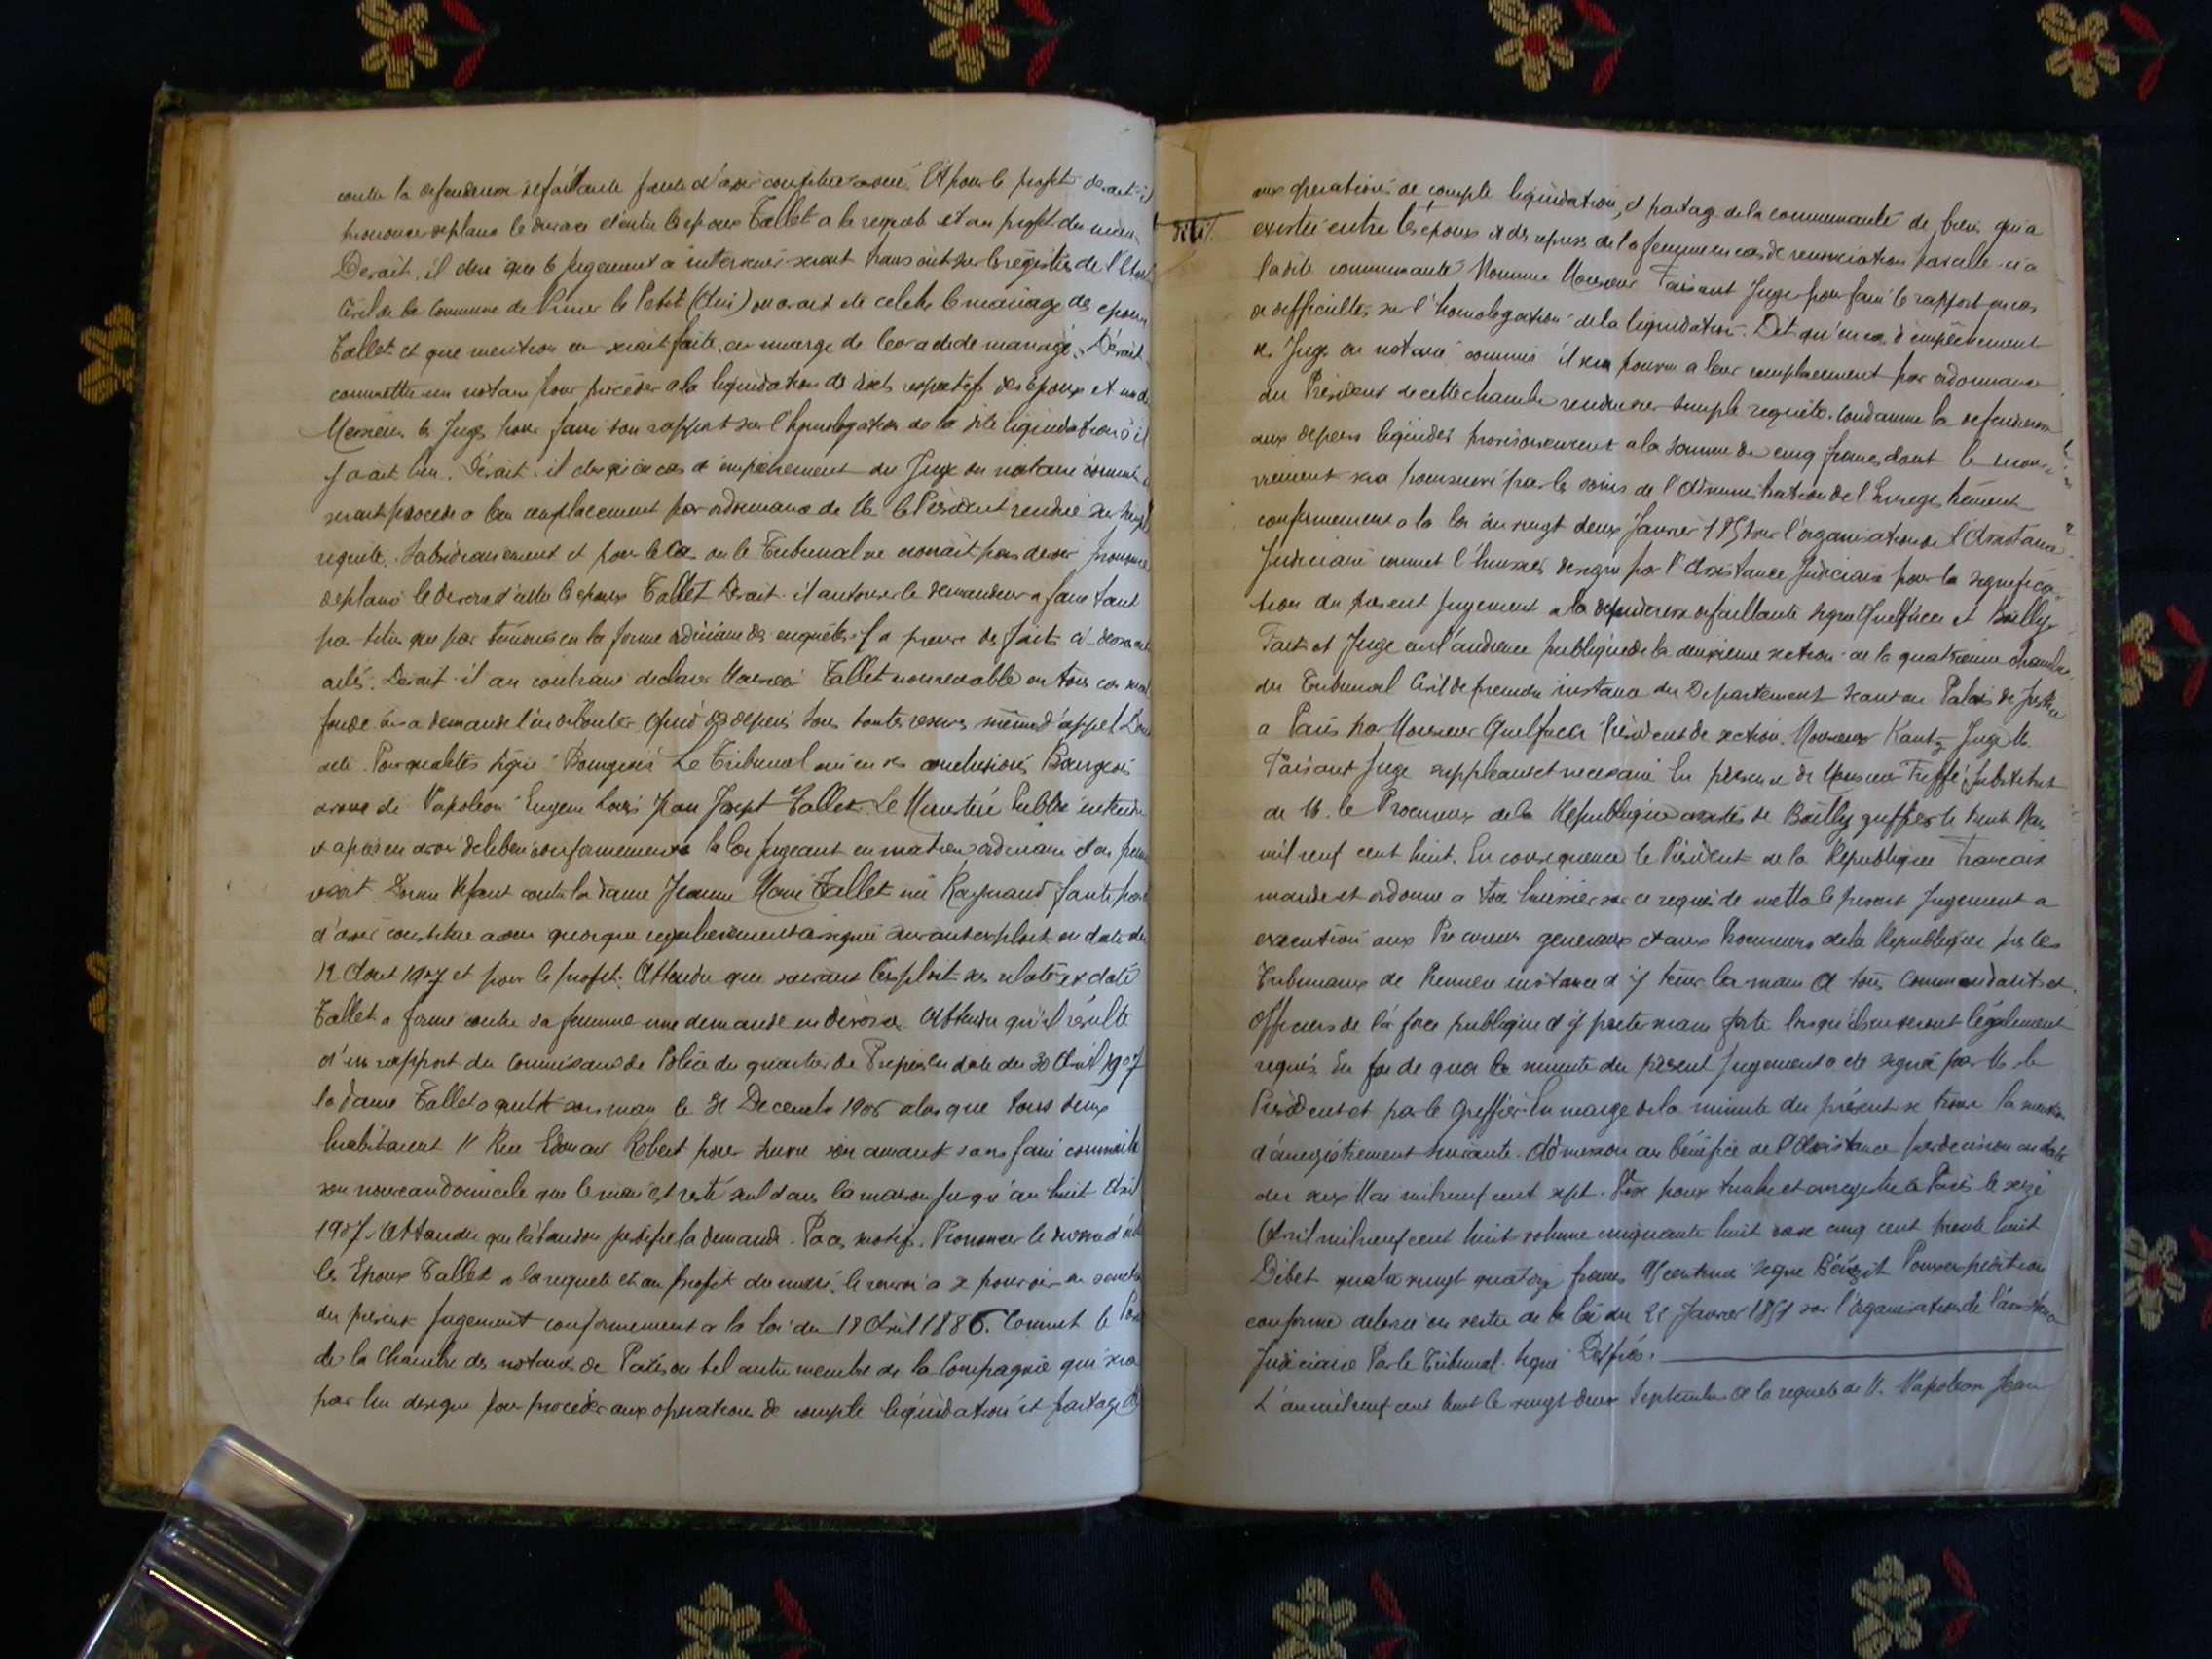 contre la defenderesse defaillante faute d'avoir constitué avoué. Et pour le profit devait-il
prononcer de plano le divorce d'entre les epoux Tallet a la requete et au profit du mari
Devait-il dire que le jugement a intervenir serait transcrit sur les registres de l'Etat
Civil de la Commune de le Petit () ou avait ete celebre le mariage des epoux
Tallet et que mention en serait faite en marge de leur acte de mariage. Devait-
commettre un notaire pour proceder a la liquidation des droits respectifs des époux et un de
Messieurs les Juges pour faire son rapport sur l'homologation de la dite liquidation s'il
y avait lieu. Devait-il dire qu'en cas d'empechement du Juge ou notaire commis
serait procede a leur remplacement par ordonnance de M. le President rendue sur simple
requete. Subsidiairement et pour le cas ou le Tribunal ne croirait pas devoir prononcer
de plano le divorce d'entre les epoux Tallet Devait-il autoriser le demandeur a faire tant
par titres que par temoins en la forme ordinaire des enquêtes la preuve des faits ci-dessus
articulés. Devait-il au contraire declarer Monsieur Tallet non recevable en tous cas mal
fondé en sa demande l'en debouter. Quid des depens sous toutes reserves même d'appel
Pour qualités signé Bourgeois Le Tribunal oui en ses conclusions Bourgeois
avoué de Napoleon Eugene Louis Jean Joseph Tallet. Le Ministère Public entendu
et apres en avoir deliberé conformement a la loi jugeant en matiere ordinaire et en premier
ressort Donne defaut contre la dame Jeanne Marie Tallet née Raynaud faute par
d'avoir constitué avoué quoique regulierement assignée suivant exploit en date du
12 Aout 1907 et pour le profit: Attendu que suivant exploit sus relaté et daté
Tallet a formé contre sa femme une demande en divorce. Attendu qu'il résulte
d'un rapport du Commissaire de Police du quartier de en date du 30 Avril 1907
la dame Tallet a quitté son mari le 31 Decembre 1906 alors que tous deux
habitaient 11 Rue Edouard Robert pour suivre son amant sans faire connaitre
son nouveau domicile que le mari est resté seul dans la maison jusqu'au huit Avril
1907. Attendu que l'abandon justifie la demande. Par ces motifs. Prononce le divorce d'entre
les Epoux Tallet a la requete et au profit du mari, le renvoi a se pourvoir en execution
du present jugement conformement a la loi du 18 Avril 1886. Commet le
de la Chambre des notaires de Paris ou tel autre membre de la Compagnie qui sera
par lui designé pour proceder aux operations de compte liquidation et partage
aux operations de compte liquidation et partage de la communauté de biens qui a
existé entre les époux et des reprises de la femme en cas de renonciation par elle a
la dite communauté Nomme Monsieur Paisant Juge pour faire le rapport en cas
de difficultés sur l'homologation de la liquidation. Dit qu'en cas d'empêchement
des Juge ou notaire commis il sera pourvu a leur remplacement par ordonnance
du President de cette chambre rendue sur simple requête. Condamne la defenderesse
aux depens liquidés provisoirement a la somme de cinq francs dont le recou-
vrement sera poursuivi par les soins de l'Administration de l'Enregistrement
conformement a la loi du vingt deux Janvier 1851 sur l'organisation de l'Assistance
Judiciaire commet l'huissier designé par l'Assistance Judiciaire pour la significa-
tion du present jugement a la defenderesse defaillante signé Quelfucci et Bailly
Fait et Jugé en l'audience publique de la deuxieme section de la quatrieme chambre
du Tribunal Civil de premiere instance du Departement seant au Palais de Justice
a Paris par Monsieur Quelfucci President de section. Monsieur Kantz Juge M.
Paisant Juge suppleant et necessaire En présence de Monsieur Substitut
de M. le Procureur de la Republique assistés de Bailly greffier le trente Mars
mil neuf cent huit. En consequence le President de la Republique Francaise
mande et ordonne a tous huissiers sur ce requis de mettre le present Jugement a
execution aux Procureurs generaux et aux Procureurs de la Republique pres les
Tribunaux de Premiere instance d'y tenir la main A tous Commandants et
Officiers de la force publique d'y preter main forte lorsqu'ils en seront légalement
requis. En foi de quoi la minute du present jugement a ete signé par M. le
Président et par le Greffier. En marge de la minute du présent se trouve la mention
d'enregistrement suivante. Admission au bénéfice de l'Assistance par decision en date
du seize Mai mil neuf cent sept. Visé pour timbre et enregistré à Paris le seize
Avril mil neuf cent huit volume cinquante huit case cinq cent trente huit
Débet quatre vingt quatorze francs 95 centimes signé Pour expedition
conforme delivrée en vertu de la loi du 22 Janvier 1851 sur l'organisation de l'assistance
Judiciaire Par le Tribunal. Signé Desprès.
L'an mil neuf cent huit le vingt deux Septembre A la requete de M. Napoleon Jean